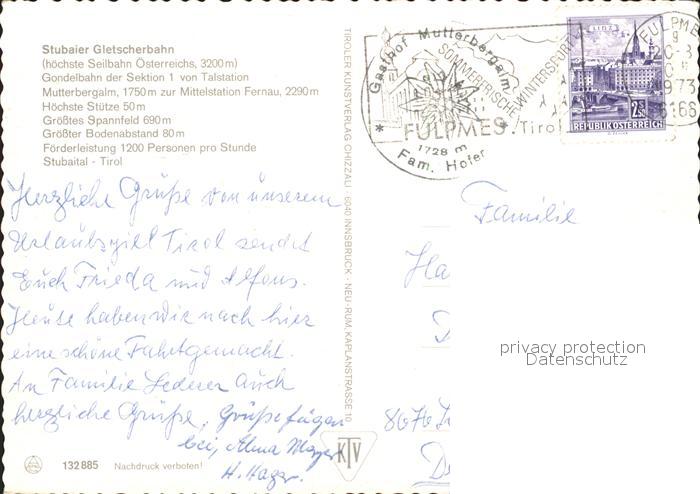 Stubaier Gletscherbahn
(höchste Seilbahn Österreichs, 3200 m)
Gondelbahn der Sektion 1 von Talstation
Mutterbergalm, 1750 m zur Mittelstation Fernau, 2290 m
Höchste Stütze 50 m
Größtes Spannfeld 690 m
Größter Bodenabstand 80 m
Förderleistung 1200 Personen pro Stunde
Stubaital - Tirol
Herzliche Grüße von unserem
Urlaubsziel Tirol sendet
Euch Frieda und Alfons.
Heute haben wir nach hier
eine schöne Fahrt gemacht.
An Familie Lederer auch
herzliche Grüße. Grüße fügen
bei, Alma Mayer
H. Hager.
132 885 Nachdruck verboten!
TIROLER KUNSTVERLAG CHIZZALI · 6040 INNSBRUCK - NEU-RUM, KAPLANSTRASSE 10
KTV
Gasthof Mutterbergalm
SOMMERFRISCHE
WINTERSPORT
FULPMES. Tirol
1728 m
Fam. Hofer
LINZ
2.50
REPUBLIK ÖSTERREICH
FULPME
1973
6166
Familie
Ha
D
8676
privacy protection
Datenschutz